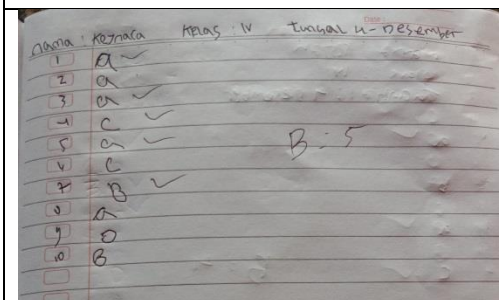 nama : Keznaca Kelas : IV tunggal 4-Desember
1 a ✓
2 a
3 a ✓
4 c ✓
5 a ✓ B = 5
6 c
7 B ✓
8 a
9 D
10 B